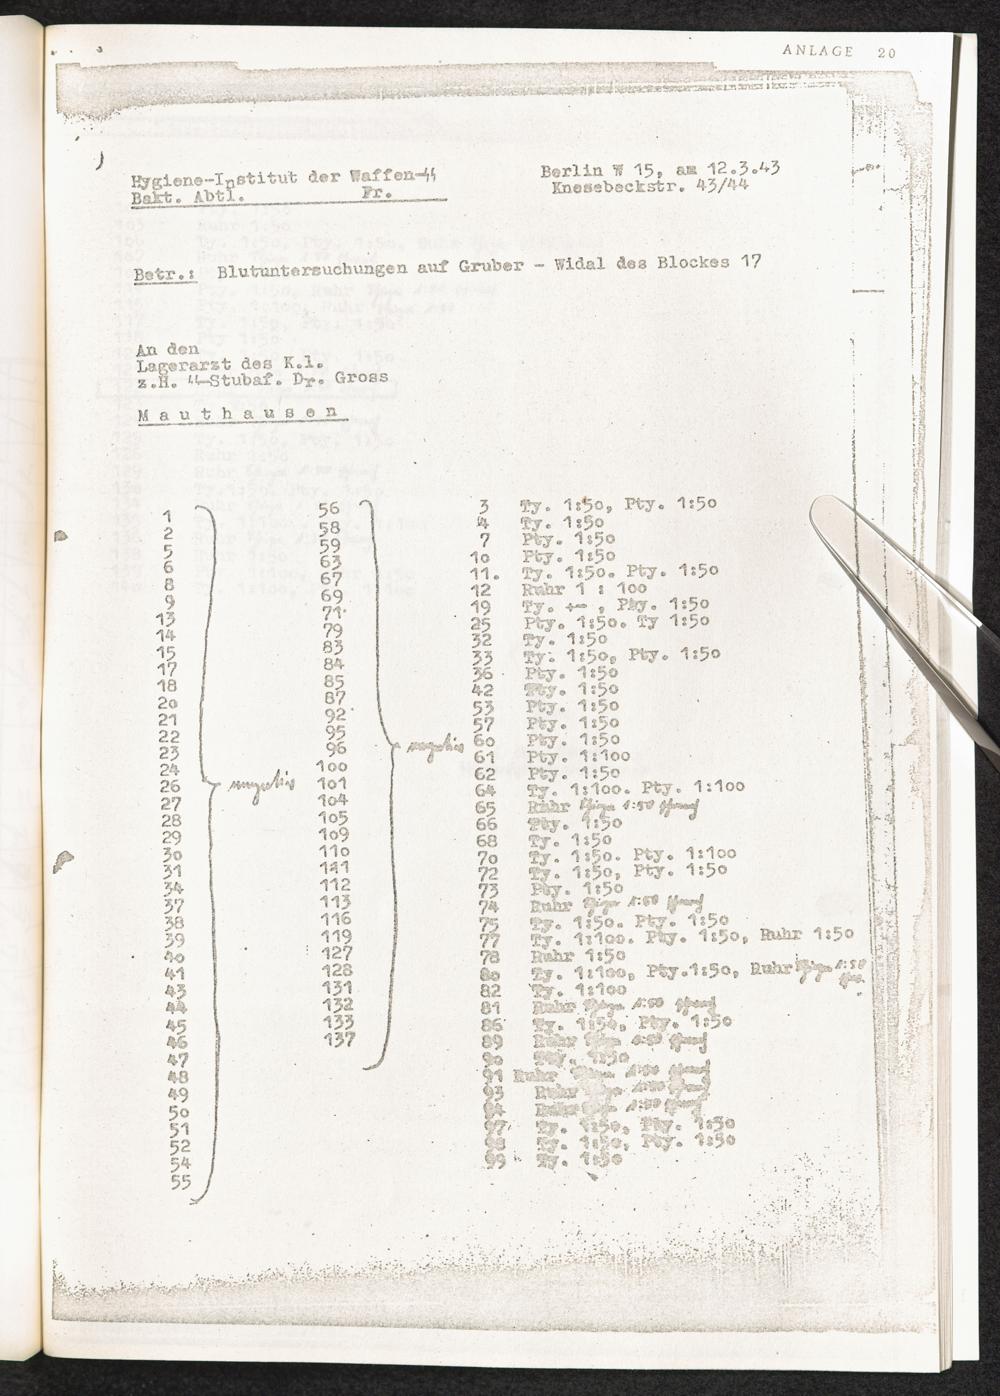 ANLAGE 20
Hygiene-Institut der Waffen-SS
Bakt. Abtl. Fr.
Berlin W 15, am 12.3.43
Knesebeckstr. 43/44
Betr.: Blutuntersuchungen auf Gruber - Widal des Blockes 17
An den
Lagerarzt des K.l.
z.H. SS-Stubaf. Dr. Gross
Mauthausen
1
2
5
6
8
9
13
14
15
17
18
20
21
22
23
24
26
27
28
29
30
31
34
37
38
39
40
41
43
44
45
46
47
48
49
50
51
52
54
55
negativ
56
58
59
63
67
69
71
79
83
84
85
87
92
95
96
100
101
104
105
109
110
111
112
113
116
119
127
128
131
132
133
137
negativ
3 Ty. 1:50, Pty. 1:50
4 Ty. 1:50
7 Pty. 1:50
10 Pty. 1:50
11. Ty. 1:50. Pty. 1:50
12 Ruhr 1 : 100
19 Ty. +- , Pty. 1:50
25 Pty. 1:50. Ty 1:50
32 Ty. 1:50
33 Ty. 1:50, Pty. 1:50
36 Pty. 1:50
42 Pty. 1:50
53 Pty. 1:50
57 Pty. 1:50
60 Pty. 1:50
61 Pty. 1:100
62 Pty. 1:50
64 Ty. 1:100. Pty. 1:100
65 Ruhr 1:50
66 Pty. 1:50
68 Ty. 1:50
70 Ty. 1:50. Pty. 1:100
72 Ty. 1:50, Pty. 1:50
73 Pty. 1:50
74 Ruhr 1:50
75 Ty. 1:50. Pty. 1:50
77 Ty. 1:100. Pty. 1:50, Ruhr 1:50
78 Ruhr 1:50
80 Ty. 1:100, Pty.1:50, Ruhr 1:50
82 Ty. 1:100
81 Ruhr 1:50
86 Ty. 1:50, Pty. 1:50
89 Ruhr 1:50
90 Pty. 1:50
91 Ruhr 1:50
93 Ruhr 1:50
94 Ruhr 1:50
97 Ty. 1:50, Pty. 1:50
98 Ty. 1:50, Pty. 1:50
99 Ty. 1:50